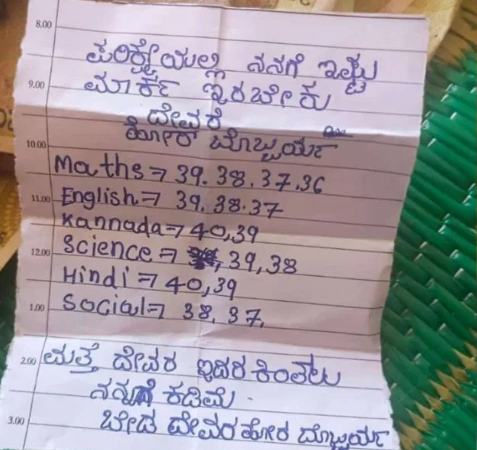 8.00
ಪರಿಕ್ಷೇಯಲ್ಲಿ ನನಗೆ ಇಷ್ಟು
9.00
ಮಾರ್ಕ ಇರಬೇಕು
ದೇವರೆ
10.00
ಹೋರ ಬೊಬ್ಬರ್ಯ
Maths⇒ 39. 38. 37. 36
11.00
English⇒ 39. 38. 37
Kannada⇒ 40,39
12.00
Science⇒ 39, 38
Hindi⇒ 40,39
1.00
Social⇒ 38, 37,
2.00
ಮತ್ತೆ ದೇವರ ಇದರ ಕಿಂತಲು
ನನ್ನಗೆ ಕಡಿಮೆ.
3.00
ಬೇಡ ದೇವರ ಹೋರ ಬೊಬ್ಬರ್ಯ